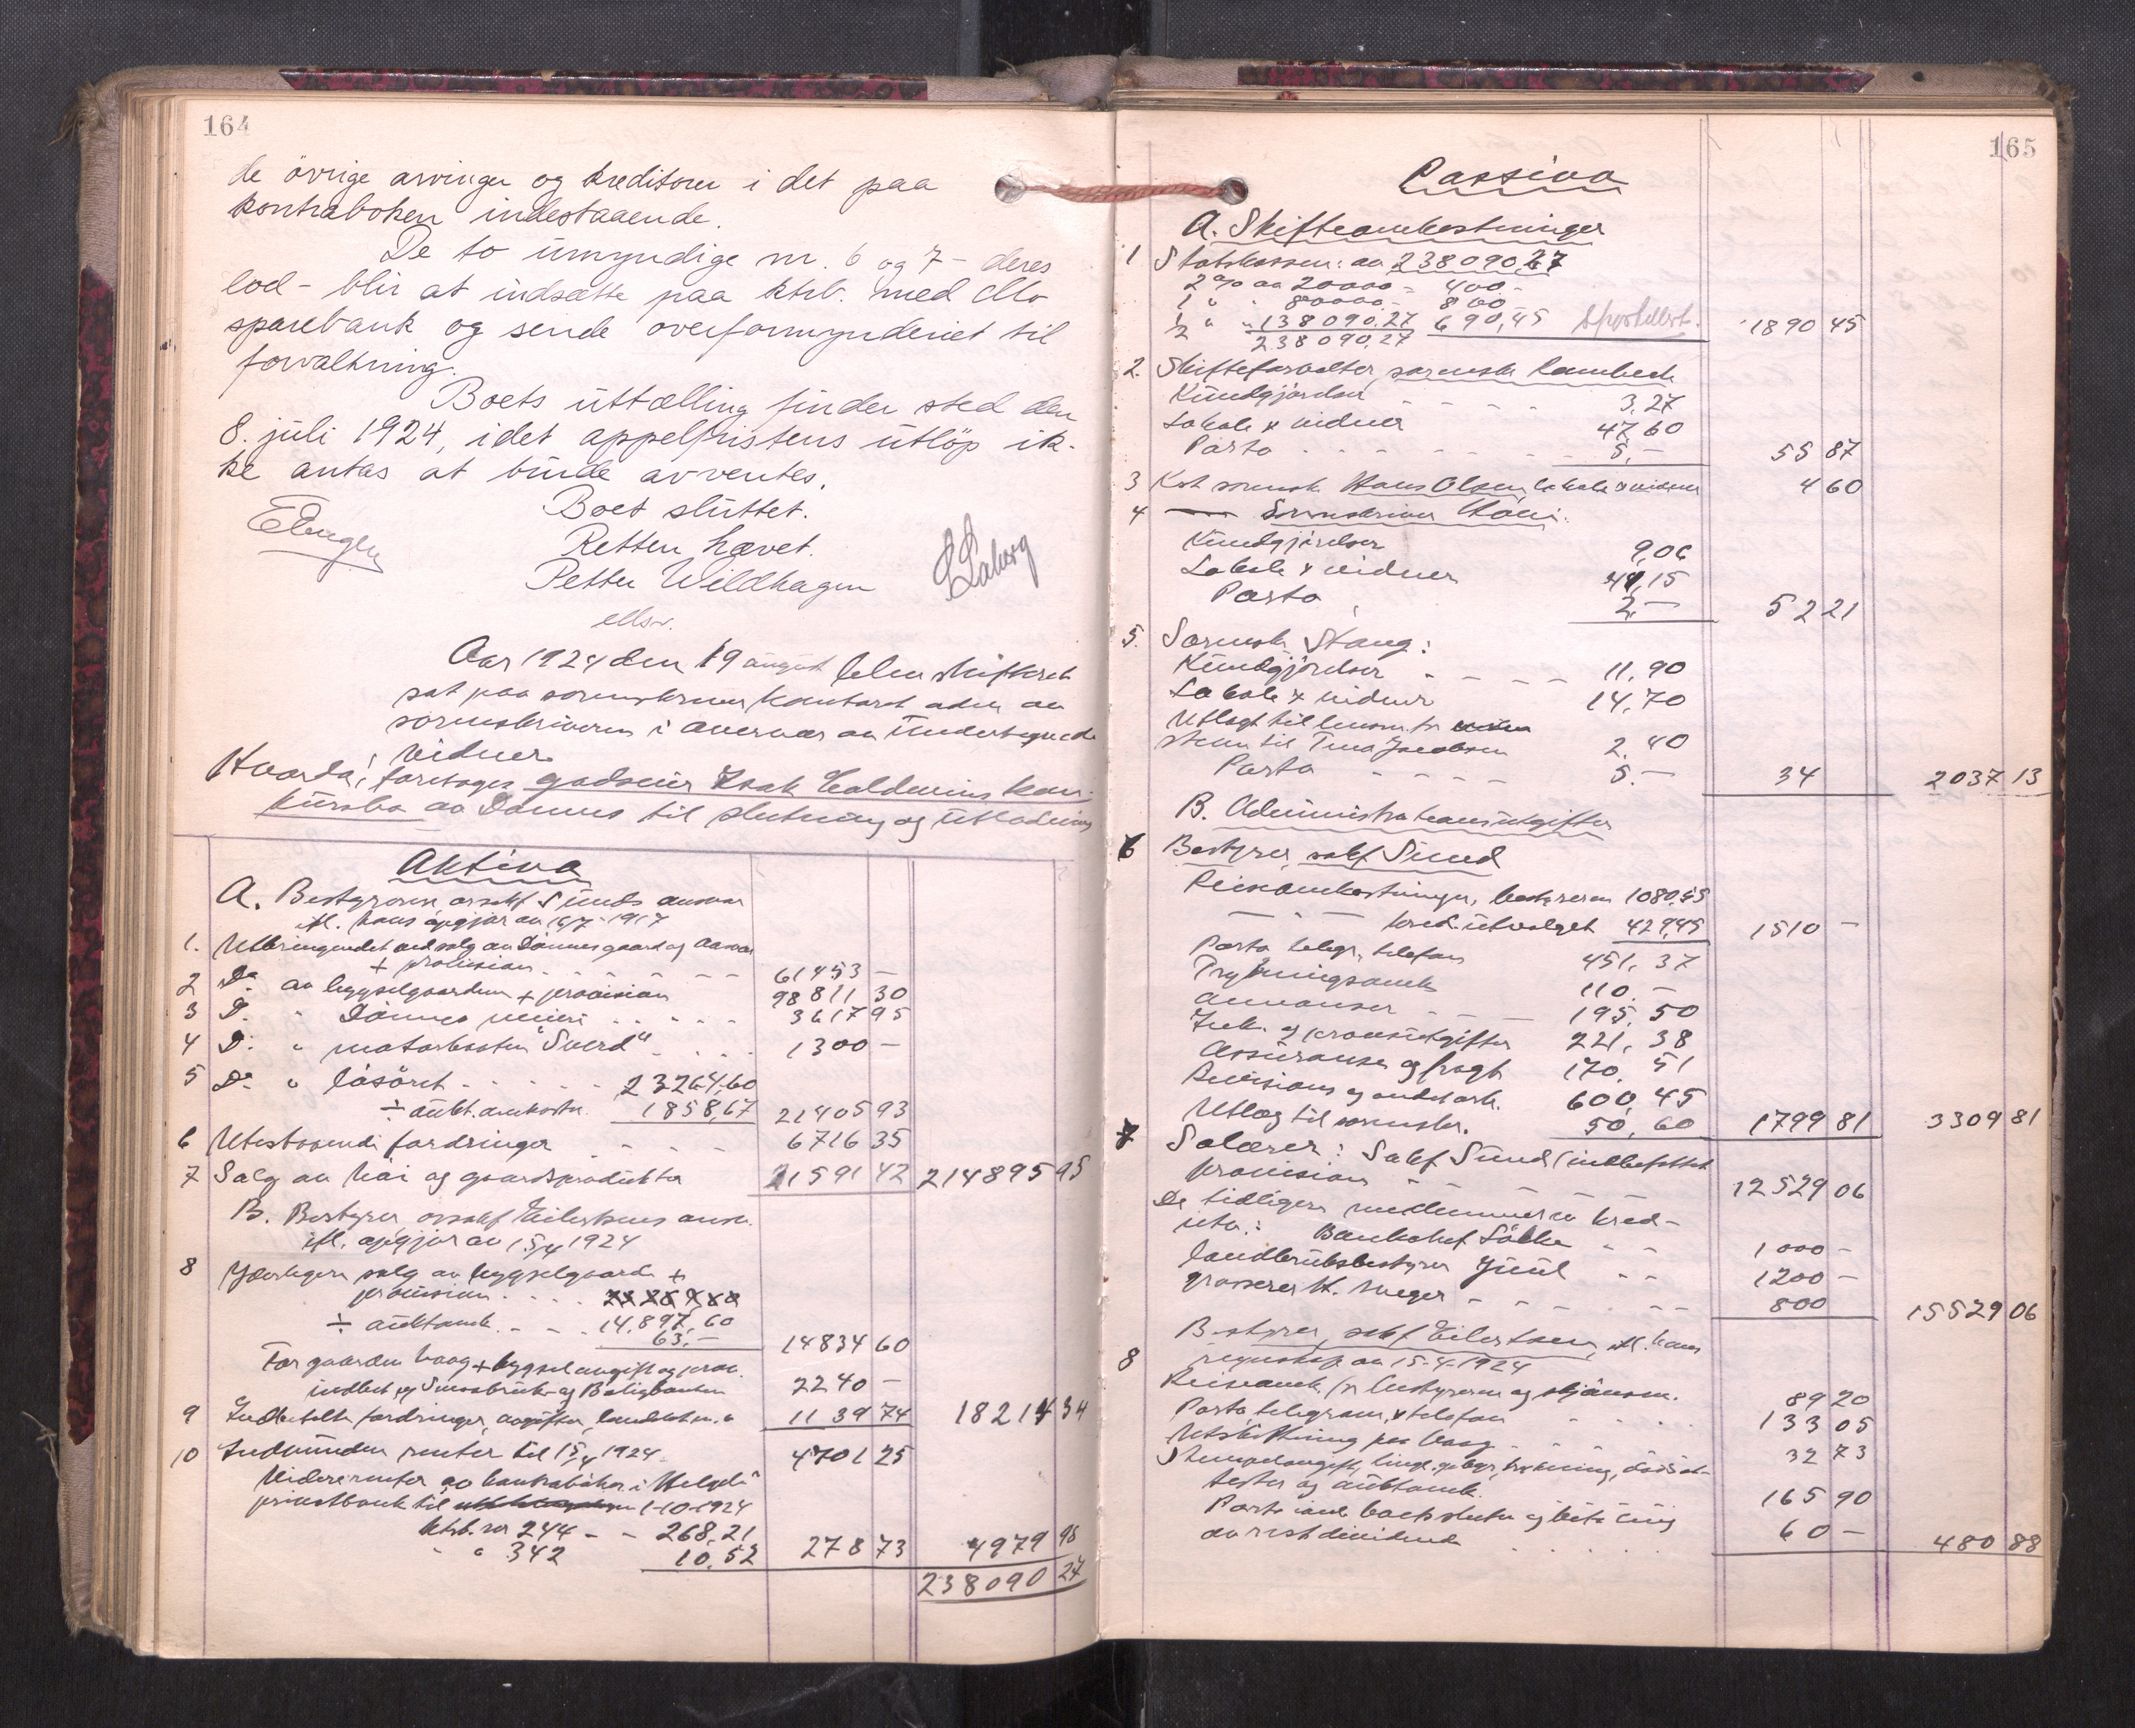 164
de övrige arvinger og kreditorer i det paa
kontraboken indestaaende.
De to umyndige nr. 6 og 7 - deres
lod - blir at indsætte paa ktrb. med Mo
sparebank og sende overformynderiet til
forvaltning.
Boets uttælling finder sted den
8. juli 1924, idet appelfristens utlöp ik-
ke antas at burde avventes.
Boet sluttet.
Retten hævet.
Petter Wildhagen
Aar 1924 den 19 august blev skifteret
sat paa sorenskriverkontoret
sorenskriveren i overvær av undertegnede
vidner.
Hvorda: foretages godseier Isak Coldevins kon-
kursbo av Dönnes til slutning og utlodning
Aktiva
A. Bestyreren o.r.sakf. Sunds ansvar
ifl. hans opgjör av 1917
1. Utbringendet ved salg av Dönnesgaard og
+ provision 61453 —
2 Do av bygselgaarden + provision 98811 30
3 D. " Dönnes meieri 3617 95
4 D: " motorbaaten "Sverd" 1300 —
5 Do " lösöret 23264,60
÷ aukt. omkostn. 1858,67 21405 93
6 Utestaaende fordringer 6716 35
7 Salg av höi og gaardsprodukter 21591 42 214895 95
B. Bestyrer o.r.sakf. Eilertsens ansv.
ifl. opgjör av 15/4 1924
8 Yderligere salg av bygselgaarde +
provision
÷ auktomk. 14.897,60
63,— 14834 60
For gaarden Vaag + bygselavgift og prov.
indbet. og Boligbanken 2240 —
9 Indbetalte fordringer, avgifter, 1139 74 18214 34
10 Indvundne renter til 15/4 1924 4701 25
Videre renter av kontraböker i Helgel.
privatbank til 1-10-1924
ktrb. nr 244 - - 268,21
" " 342 10,52 278 73 4979 98
238090 27
165
Passiva
A. Skifteomkostninger
1 Statskassen: av 238090,27
2 % av 20000 - 400 -
1 " " 80000 - 800 -
1/2 " " 138090.27 690,45 1890 45
238090.27
2. Skifteforvalter, sorenskr. Rambech
Kundgjörelser 3,27
Lokale & vidner 47,60
Porto 5,— 55 87
3 Kst. sorenskr. Hans Olsen, lokale & vidner 4 60
4 — Sorenskriver
Kundgjörelser 9,06
Lokale & vidner 41,15
Porto 2,— 52 21
5. Sorenskr. Stang:
Kundgjörelser 11,90
Lokale & vidner 14,70
Utlagt til
til Tina Jacobsen 2.40
Porto 5.— 34 2037 13
B. Administrationsutgifter
6 Bestyrer, sakf. Sund
Reiseomkostninger, bestyreren 1080,55
— " — kred.utvalget 429,45 1510 —
Porto, telegr., telefon 451,37
Trykningsomk. 110.—
Annonser 195,50
Ink. og procesutgifter 221,38
Assuranse og fragt 170,51
Revisions og andet arb. 600,45
Utlæg til sorenskr. 50,60 1799 81 3309 81
7 Salærer: Sakf. Sund (indbefattet
provision 12529 06
De tidligere medlemmer av kred-
utv.: Bankchef 1000 —
landbruksbestyrer Juul 1200 —
grosserer H. Meyer 800 15529 06
Bestyrer, sakf. Eilertsen, ifl. hans
regnskap av 15-4-1924
8
Reiseomk. for bestyreren og skjönsm. 89 20
Porto, telegram, & telefon 133 05
Utskiftning paa Vaag 32 73
Stempelavgift, tingl. gebyr, trykning, dödsat-
tester og auktomk. 165 90
Porto
av restdividende 60 — 480 88